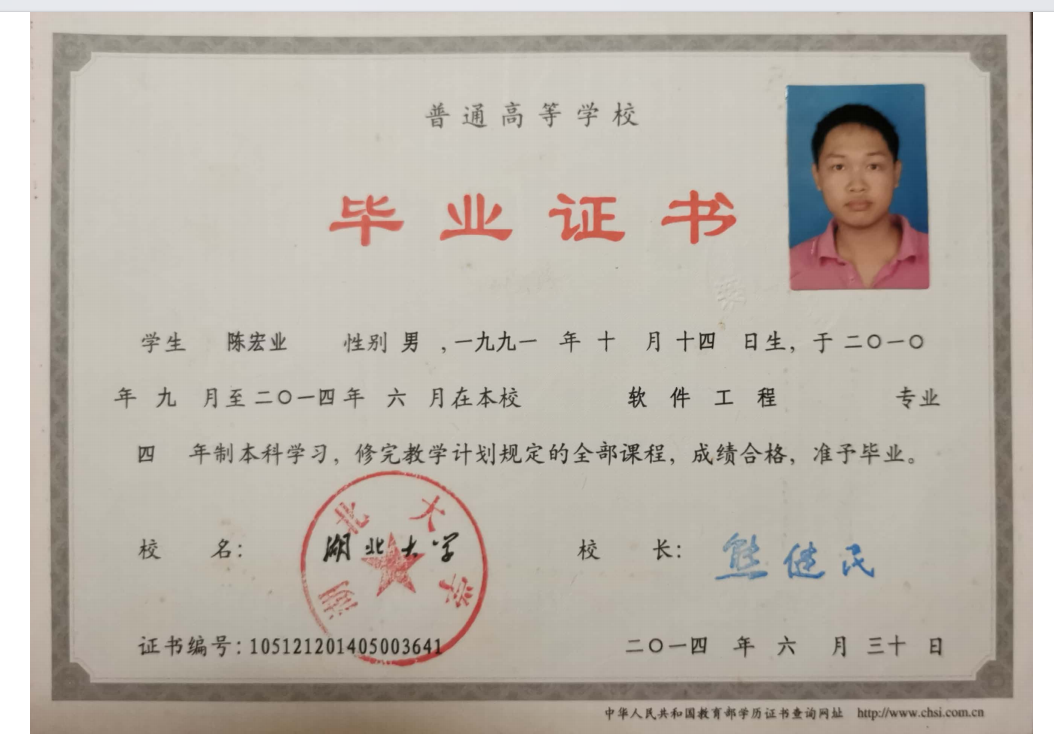 普通高等学校
毕业证书
学生 陈宏业 性别 男 ,一九九一 年 十 月 十四 日生，于 二〇一〇
年 九 月至 二〇一四 年 六 月在本校 软件工程 专业
四 年制本科学习，修完教学计划规定的全部课程，成绩合格，准予毕业。
校 名： 湖北大学 校 长： 熊健民
湖北大学
证书编号：105121201405003641 二〇一四 年 六 月 三十 日
中华人民共和国教育部学历证书查询网址 http://www.chsi.com.cn